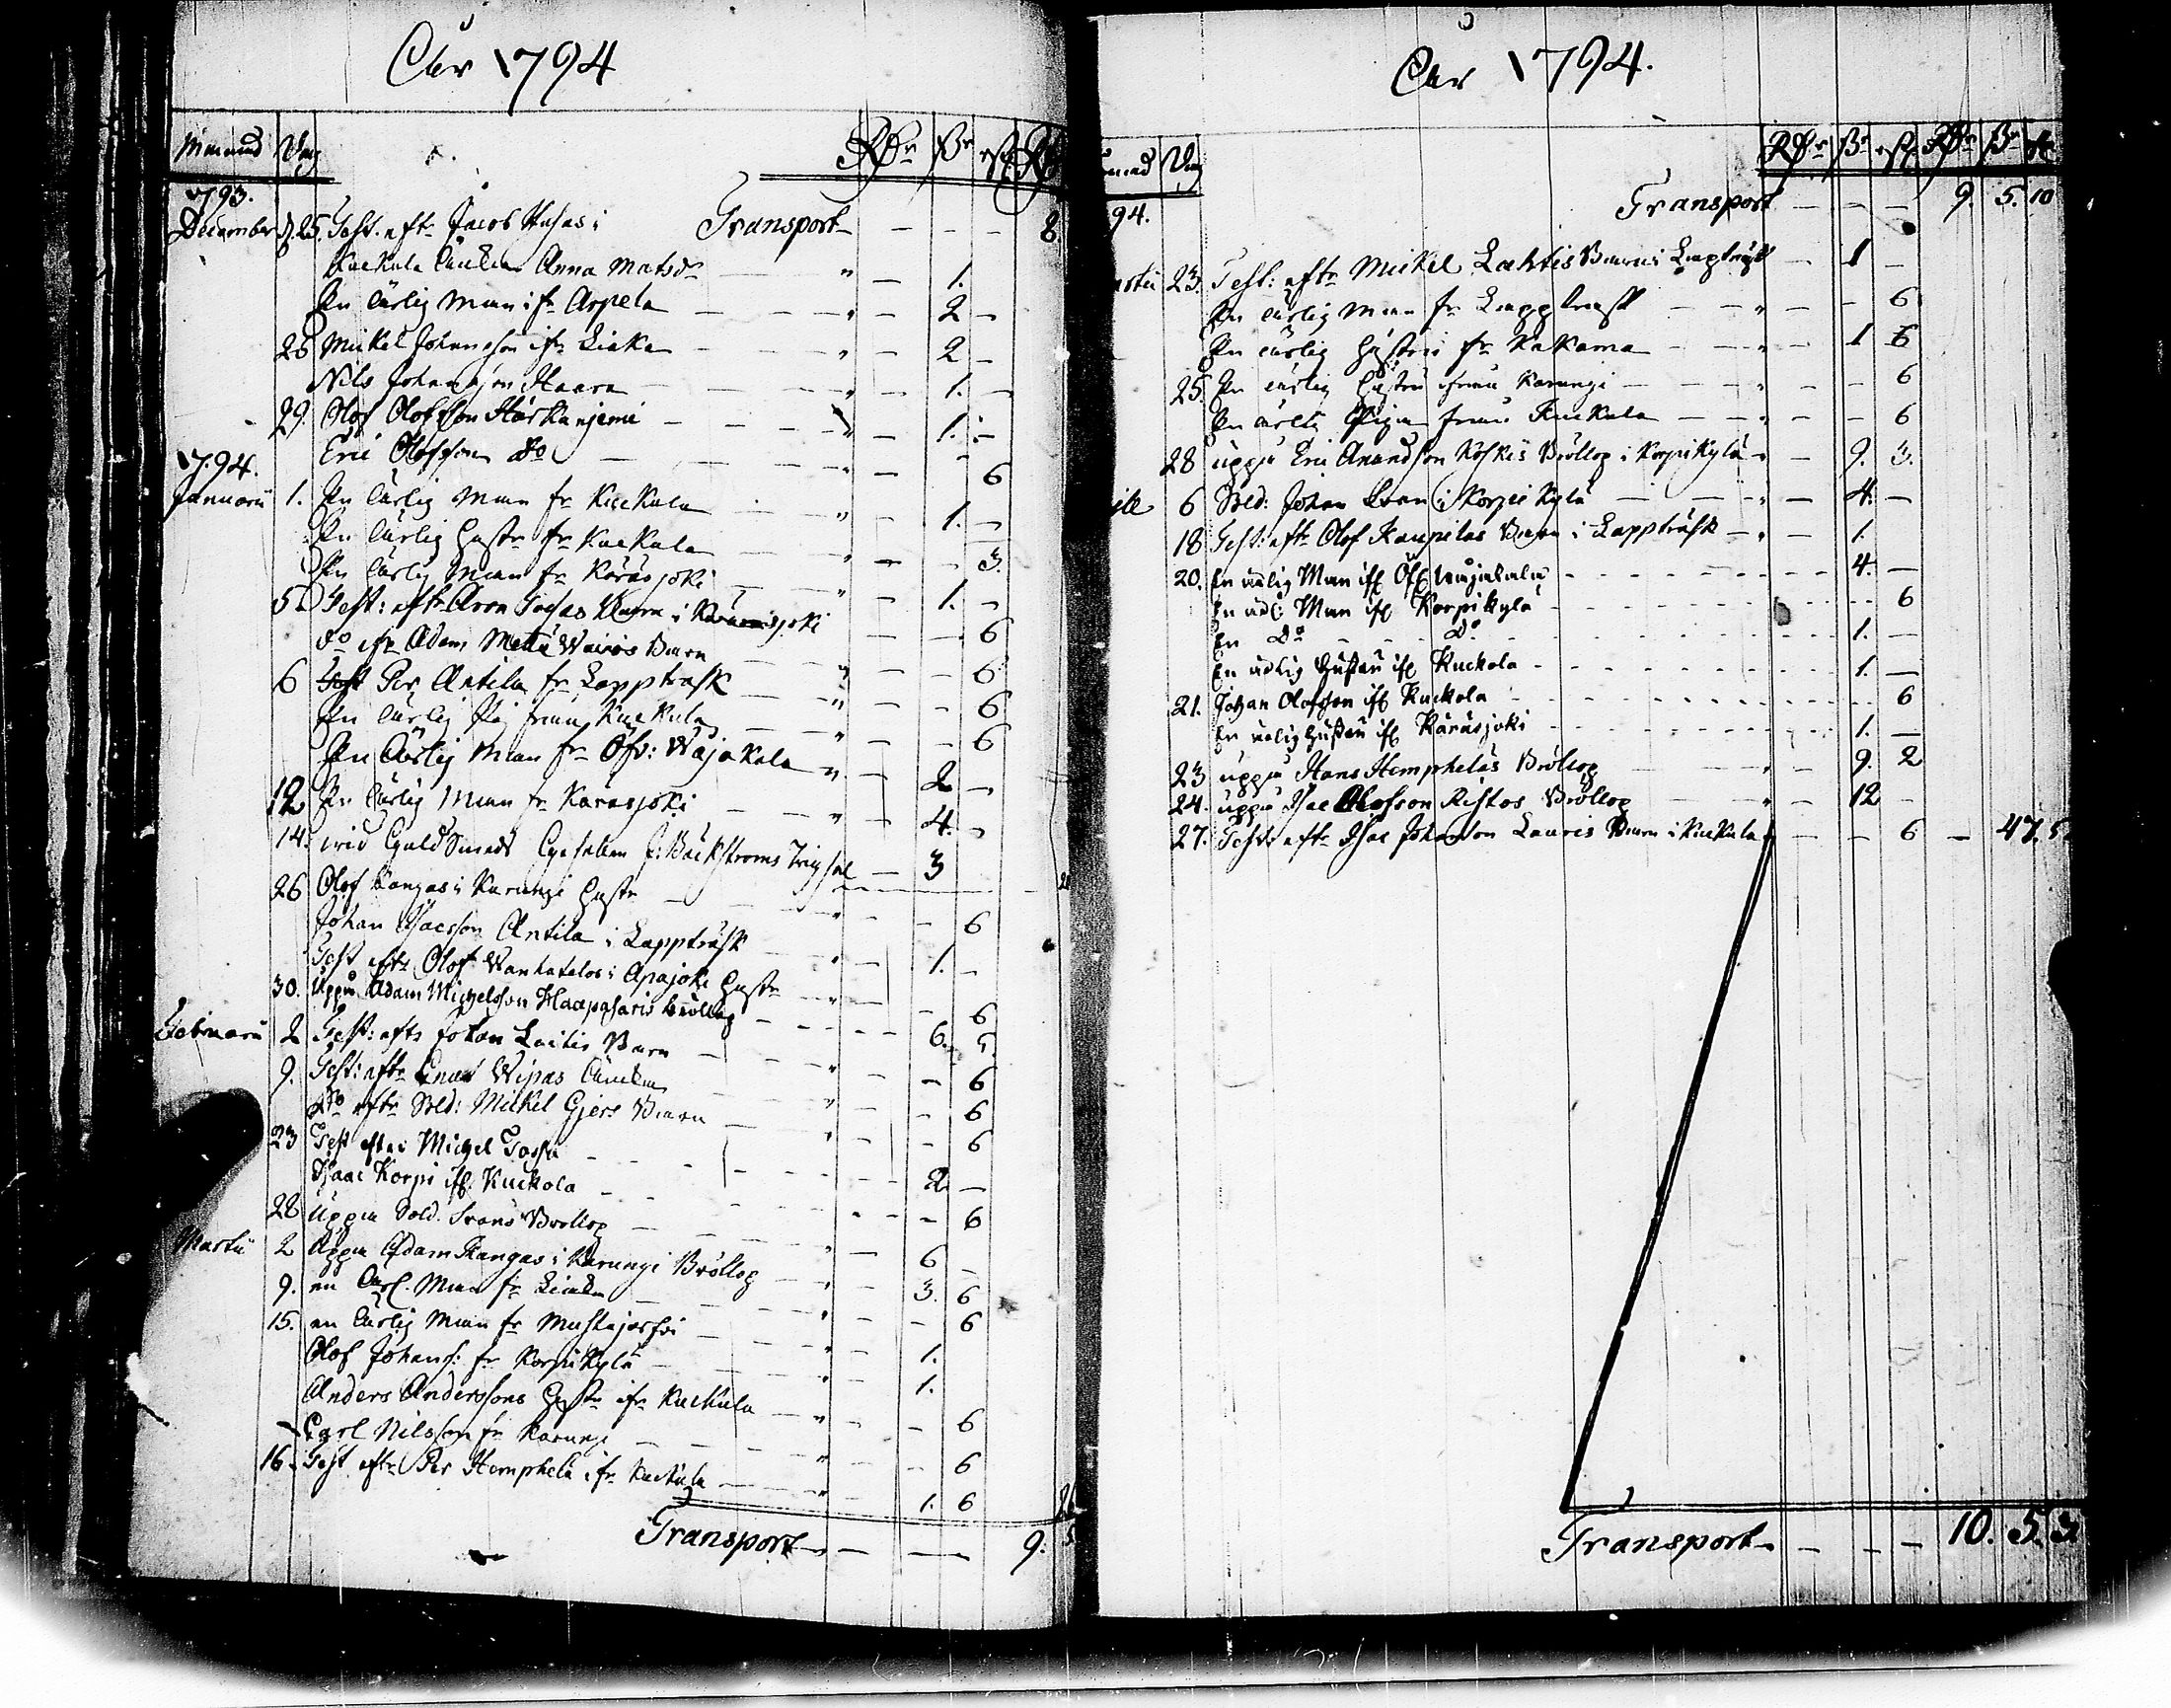 Åhr 1794
Månad Dag RDr ßr rst RDr
1793. Transport - - - 8.
December d. 25. Test. eftr Jacob Husas i
Kuckula Änckan Anna Matsdr - " - 1.
En Ährlig Man ifr Arpela - - - " - 2 -
28 Mickel Johansson ifr Liaka - - - " - 2 -
Nils Johansson Haara - - - " - 1. -
29. Olof Olofsson Härkänjemi - - - " - 1. -
Eric Olofsson do - - - " - - 6
1794.
Januarii 1. En Ährlig Man fr Kuckula - " - 1. -
En Ährlig Hustr fr Kuckula - " - - 3.
En Ährlig Man fr Karasjoki - " - 1. -
5. Test: eftr Aron Barn i Karasjoki - - 6
do eftr Adam Barn - " - - 6
6 Test Per Antila fr Lappträsk - " - - 6
En Ährlig Pig från Kuckula - " - - 6
En Ährlig Man fr Öfv: Wojakala " - 2 -
12 En Ährlig Man fr Karasjoki - " - 4. -
14. wid Guld Smeds Gesällen J: Bäckstroms - 3
26 Olof Kangas i Karungi Hustr - " - - 6
Johan Isacsson Antila i Lappträsk - " - 1. -
Test eftr Olof Wanhatalos i Apajoki Hustr - " - - 6
30. Uppå Adam Michelsson Haapasaris bröllop - - - 6. 5.
Februarii 2 Test: eftr Johan Laitis Barn - " - - 6
9. Test: eftr Wipas Änckan - " - - 6
Do eftr Sold: Mickel Gjers Barn - " - - 6
23 Test efter Michel - - - 2 -
Isaac Korpi ifr Kuckola - - - - 6
28 Uppå Sold. Bröllop - " - 6 -
Martii 2 Uppå Adam Kangas i Karungi Bröllop - " - 3. 6
9. en Ährl. Man fr Liaka - " - - 6
15. en Ährlig Man fr Mustajerfvi - " - 1.
Olof Johans: fr Korpikylä - " - 1.
Anders Anderssons Hustr ifr Kuckula - " - - 6
Carl Nilsson fr Karungi - " - - 6
16. Test eftr Per Hemphelä ifr Kuckula - " - 1. 6
Transport - - 9.
Åhr 1794.
Dag RDr ßr rst RDr ßr rst
94. Transport - - - 9. 5. 10
23. Test: eftr Mickel Lahtis Barn i Lappträsk - 1 -
En ährlig Man fr Lappträsk - - " - - 6
En ährlig Hustru fr Kakama - - " - 1 6
25. En ährlig Hustru ifrån Karungi - - " - - 6
En ährlig Piga från Kuckula - - " - - 6
28 uppå Eric Anundson Koskis Bröllop i Korpikylä - " - 9. 3.
6 Sold: Johan i Korpikylä - - " - 4. -
18 Test: eftr Olof Kaupilas Barn i Lappträsk - " - 1.
20. En ärlig Man ifr Öfv Wojakala - - - 4. -
En ärl: Man ifr Korpikylä - - - 6
En Do - - Do - - 1. -
En ärlig Hustru ifr Kuckola - - - 1. -
21. Johan Olofsson ifr Kuckola - - - 6
En ärlig Hustru ifr Karasjoki - - - 1. -
23 uppå Hans Hempheläs Bröllop - " - 9. 2
24. uppå Isac Olofsson Ristos Bröllop - " - 12 -
27. Test: eftr Isac Johansson Lauris Barn i Kuckula - - - 6 - 47. 5
Transport - - - 10. 5. 3